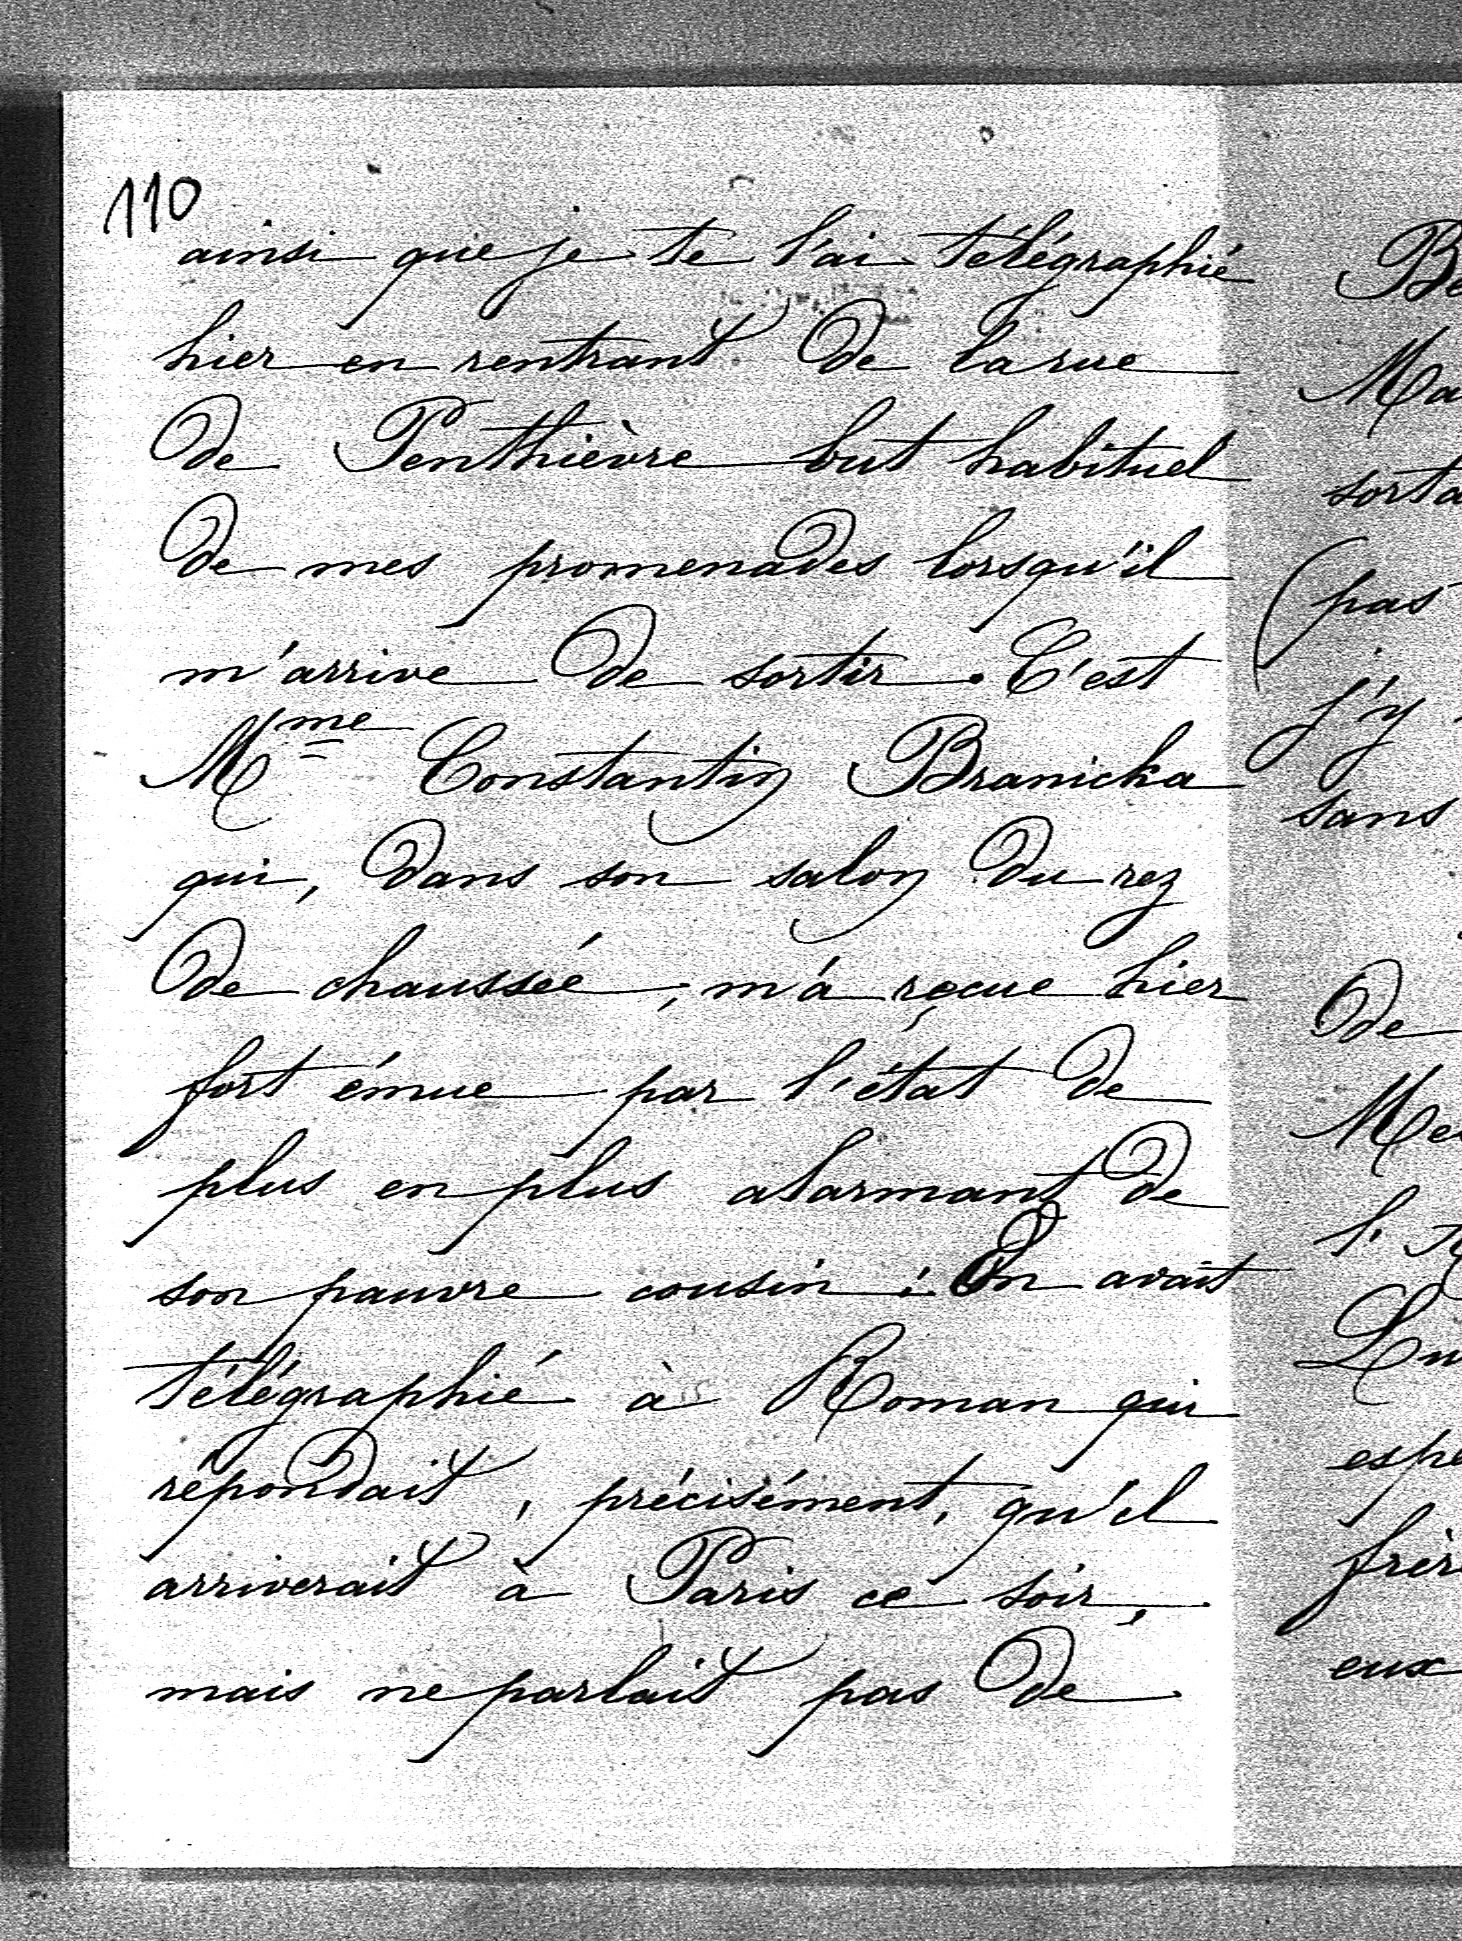 110
ainsi que je te l'ai télégraphié
hier en rentrant de la rue
de Penthièvre but habituel
de mes promenades lorsqu'il
m'arrive de sortir. C'est
Mme Constantin Branicka
qui, dans son salon du rez
de chaussée, m'a reçue hier
fort émue par l'état de
plus en plus alarmant de
son pauvre cousin : On avait
télégraphié à Roman qui
répondait, précisément, qu'il
arriverait à Paris ce soir,
mais ne parlait pas de
Be
Ma
sorta
(pas
j'y
sans
de
Me
l.
Lu
espé
frèr
eux